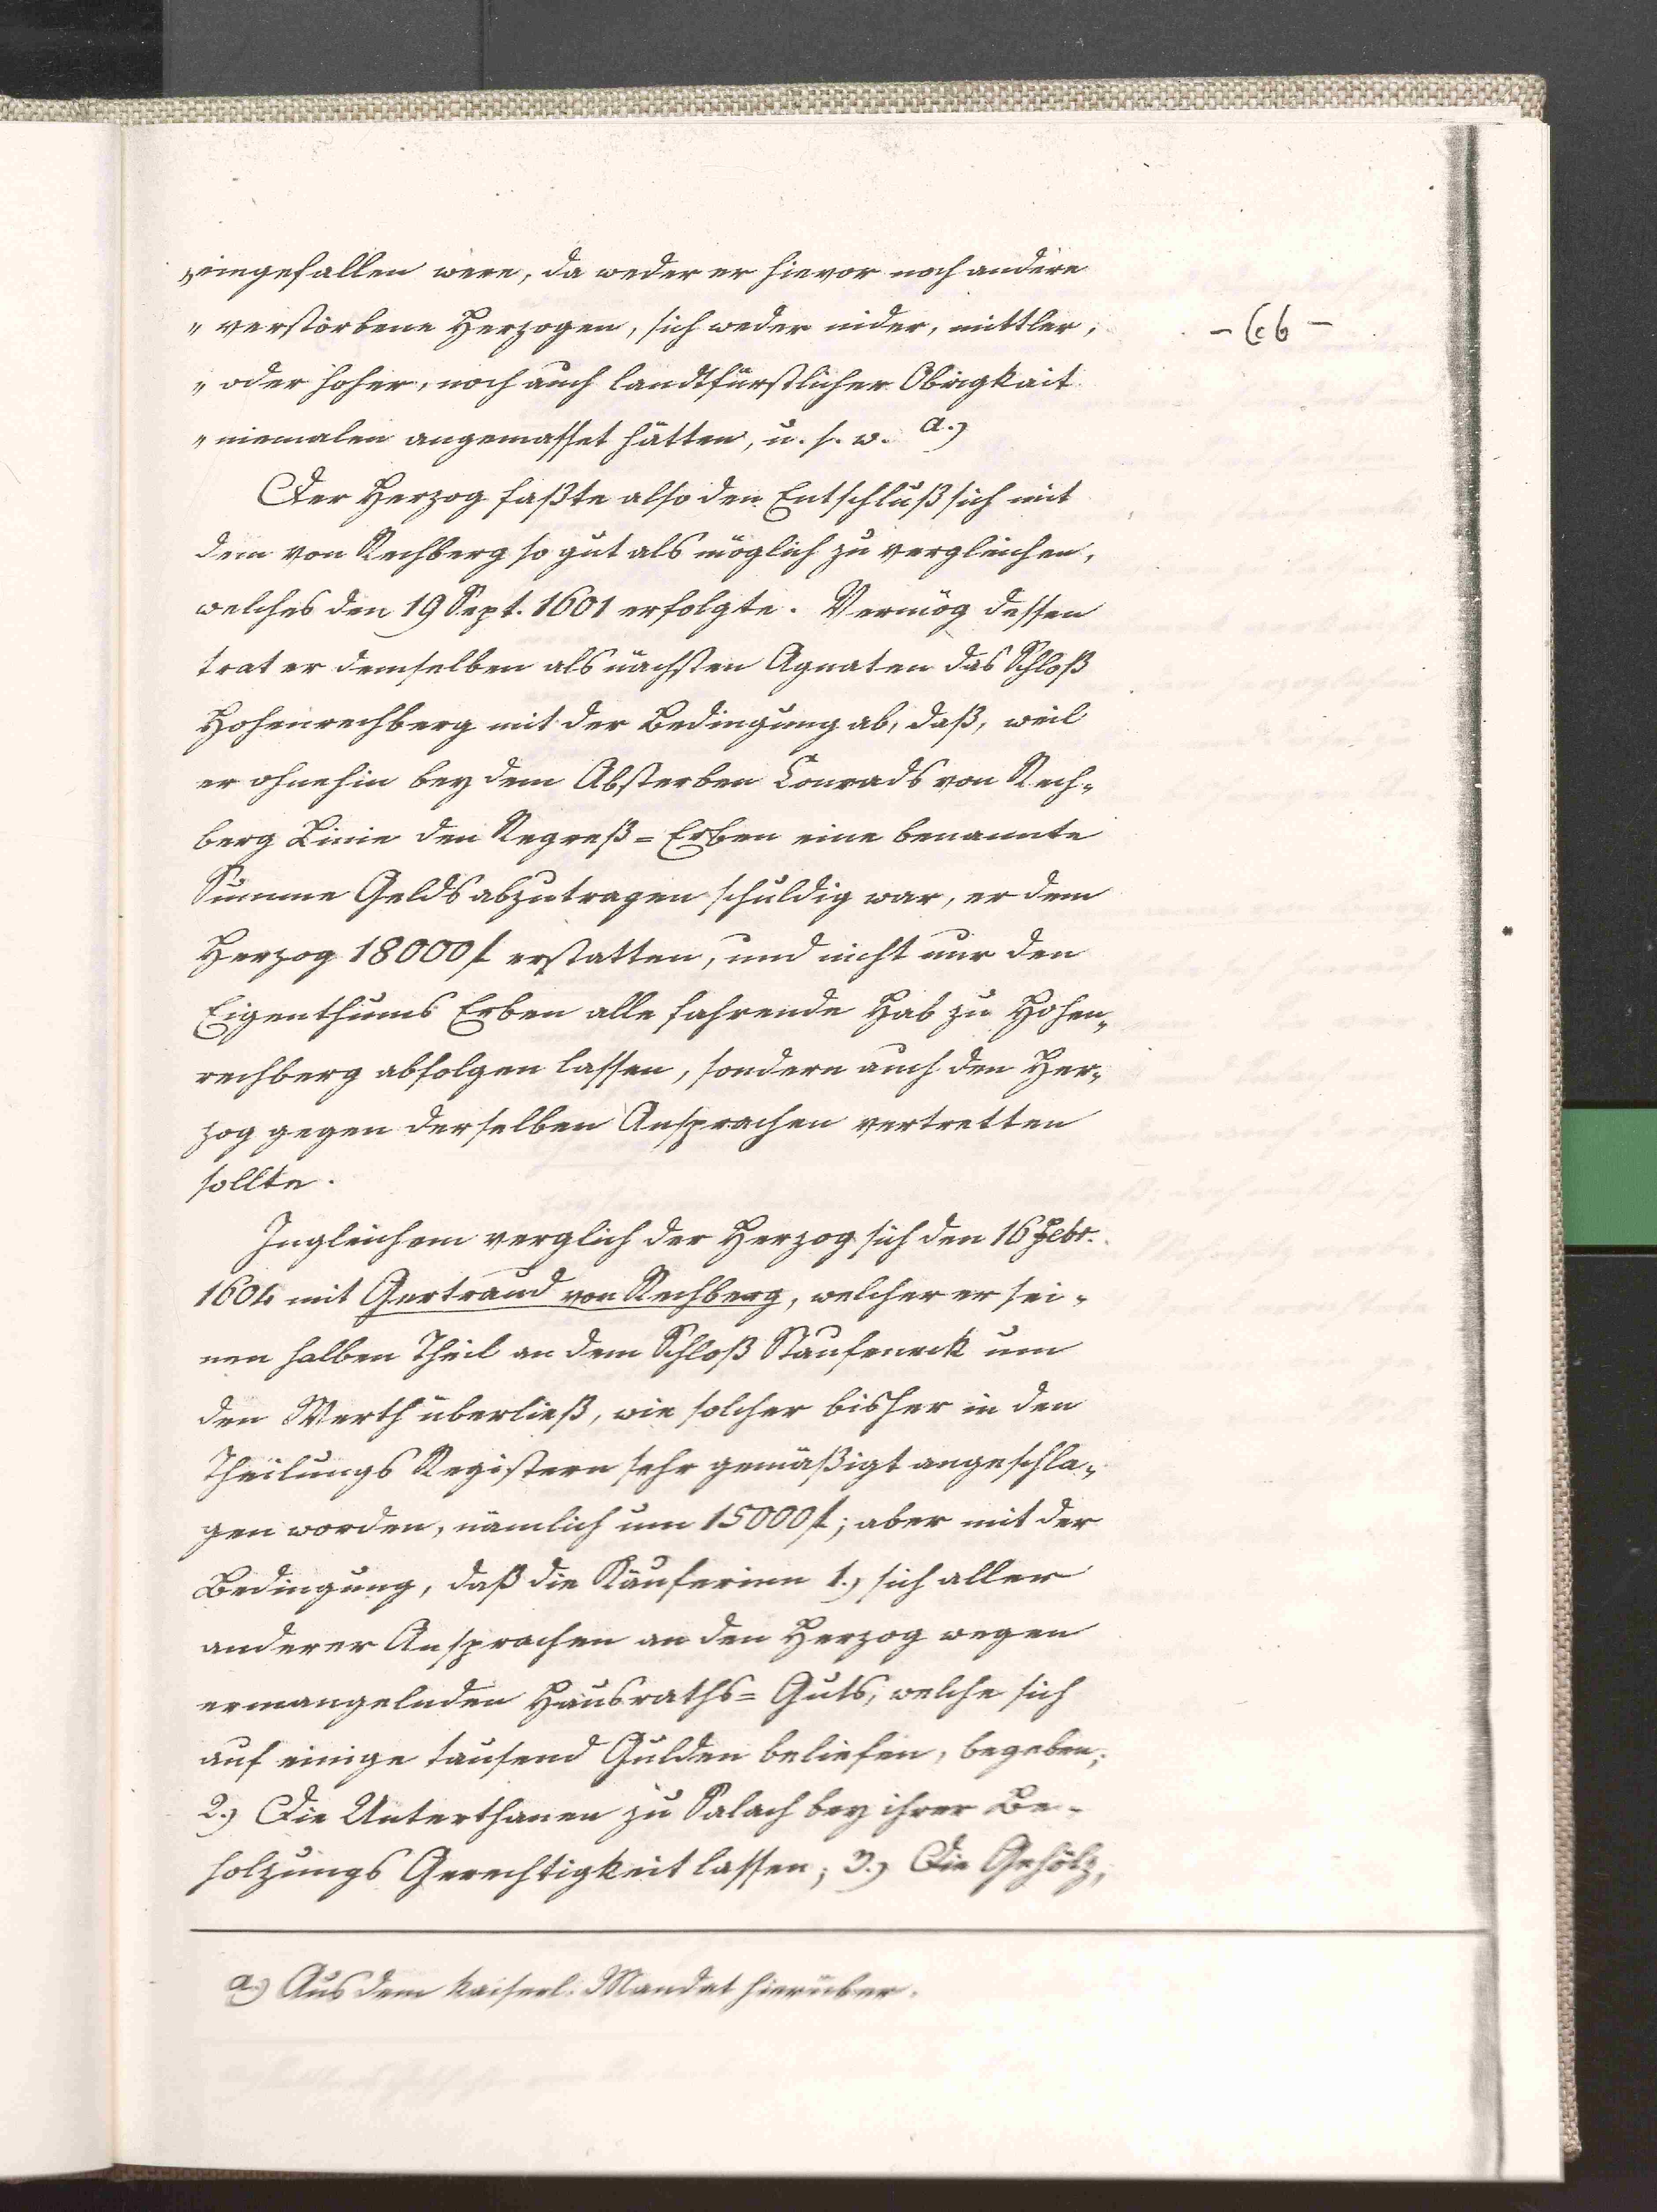 „eingefallen were, da weder er hievor noch andere
„verstorbene Herzogen, sich weder nider, mittler,
„oder hoher, noch auch landtfürstlicher Obrigkait
„niemalen angemasset hätten, u. s. w. a.)
Der Herzog faßte also den Entschluß sich mit
dem von Rechberg so gut als möglich zu vergleichen,
welches den 19 Sept. 1601 erfolgte. Vermög dessen
trat er demselben als nächsten Agnaten das Schloß
Hohenrechberg mit der Bedingung ab, daß, weil
er ohnehin bey dem Absterben Conrads von Rech-
berg Linie den Regreß=Erben eine benannte
Summe Gelds abzutragen schuldig war, er dem
Herzog 18000 f erstatten, und nicht nur den
Eigenthums Erben alle fahrende Hab zu Hohen-
rechberg abfolgen lassen, sondern auch den Her-
zog gegen derselben Ansprachen vertretten
sollte.
Ingleichem verglich der Herzog sich den 16 Febr.
1604 mit Gertraud von Rechberg, welcher er sei-
nen halben Theil an dem Schloß Staufeneck um
den Werth überließ, wie solcher bisher in den
Theilungs Registern sehr gemäßigt angeschla-
gen worden, nämlich um 15000 f; aber mit der
Bedingung, daß die Käuferinn 1.) sich aller
anderer Ansprachen an den Herzog wegen
ermangelnden Hausraths=Guts, welche sich
auf einige tausend Gulden beliefen, begeben;
2.) Die Unterthanen zu Salach bey ihrer Be-
holzungs Gerechtigkeit lassen; 3.) Die Gehölz,
a.) Aus dem kaiserl. Mandat hierüber.